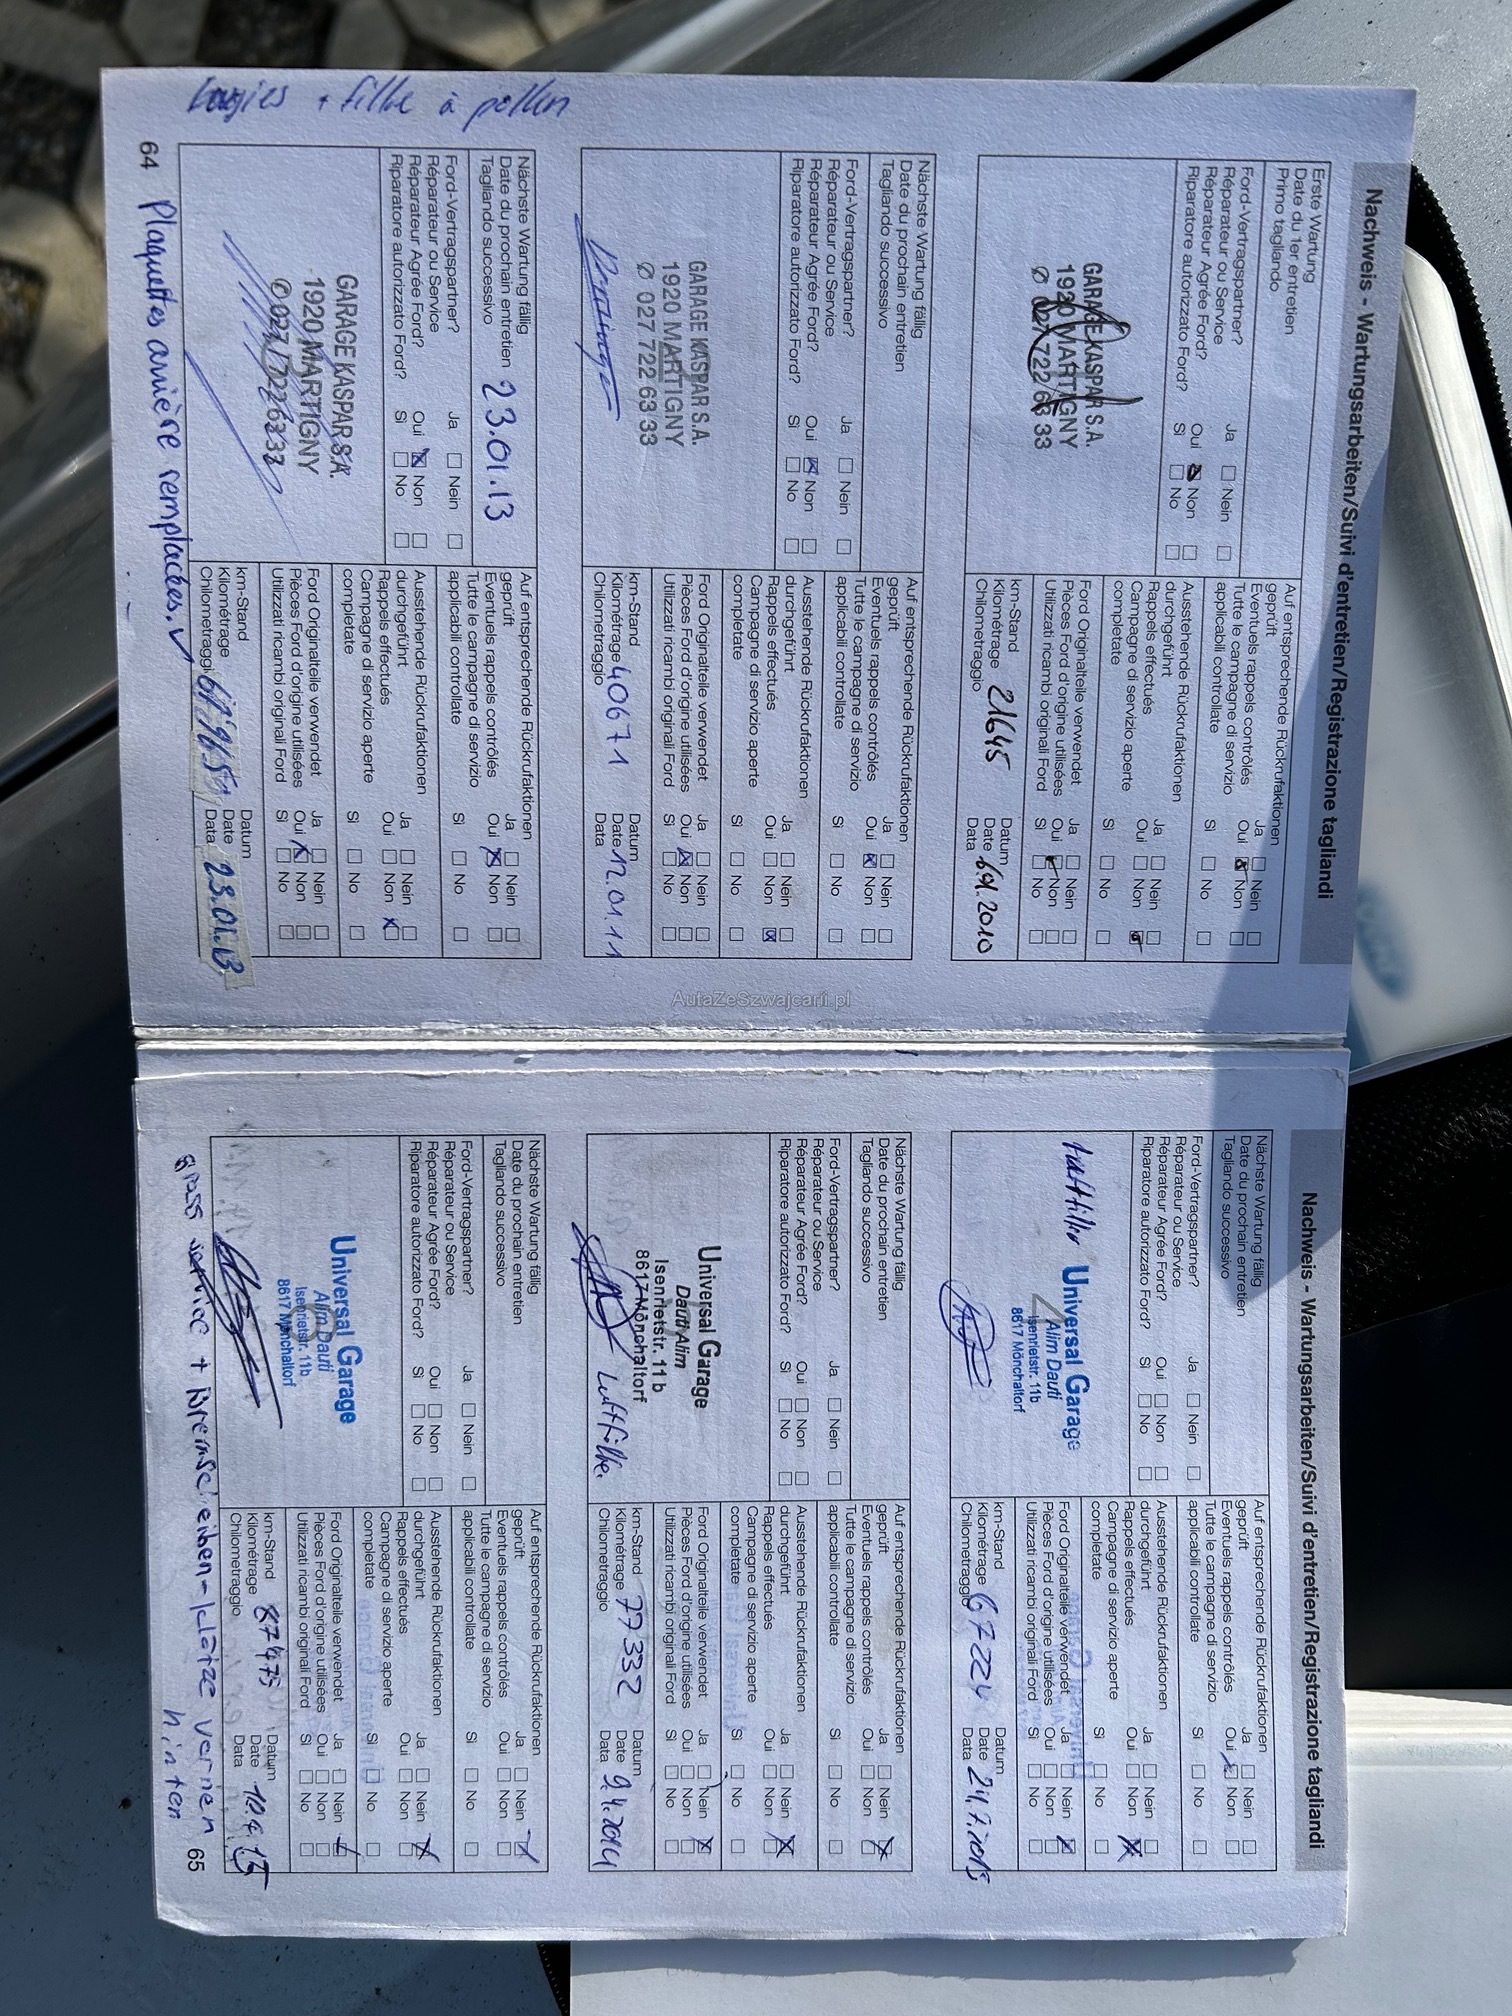 Nachweis - Wartungsarbeiten/Suivi d'entretien/Registrazione tagliandi
Erste Wartung
Date du 1er entretien
Primo tagliando
Ford-Vertragspartner?
Réparateur ou Service
Réparateur Agrée Ford?
Riparatore autorizzato Ford?
Ja Nein
Oui Non
Si No
GARAGE KASPAR S.A.
1920 MARTIGNY
Ø 027 722 63 33
Auf entsprechende Rückrufaktionen
geprüft
Eventuels rappels contrôlés
Tutte le campagne di servizio
applicabili controllate
Ja Nein
Oui Non
Si No
Ausstehende Rückrufaktionen
durchgeführt
Rappels effectués
Campagne di servizio aperte
completate
Ja Nein
Oui Non
Si No
Ford Originalteile verwendet
Pièces Ford d'origine utilisées
Utilizzati ricambi originali Ford
Ja Nein
Oui Non
Si No
km-Stand
Kilométrage 21645
Chilometraggio
Datum
Date 2010
Data
Nächste Wartung fällig
Date du prochain entretien
Tagliando successivo
Ford-Vertragspartner?
Réparateur ou Service
Réparateur Agrée Ford?
Riparatore autorizzato Ford?
Ja Nein
Oui Non
Si No
GARAGE KASPAR S.A.
1920 MARTIGNY
Ø 027 722 63 33
Auf entsprechende Rückrufaktionen
geprüft
Eventuels rappels contrôlés
Tutte le campagne di servizio
applicabili controllate
Ja Nein
Oui Non
Si No
Ausstehende Rückrufaktionen
durchgeführt
Rappels effectués
Campagne di servizio aperte
completate
Ja Nein
Oui Non
Si No
Ford Originalteile verwendet
Pièces Ford d'origine utilisées
Utilizzati ricambi originali Ford
Ja Nein
Oui Non
Si No
km-Stand
Kilométrage 40671
Chilometraggio
Datum
Date 12.01.11
Data
Nächste Wartung fällig
Date du prochain entretien 23.01.13
Tagliando successivo
Ford-Vertragspartner?
Réparateur ou Service
Réparateur Agrée Ford?
Riparatore autorizzato Ford?
Ja Nein
Oui Non
Si No
GARAGE KASPAR S.A.
1920 MARTIGNY
✆ 027 722 63 33
Auf entsprechende Rückrufaktionen
geprüft
Eventuels rappels contrôlés
Tutte le campagne di servizio
applicabili controllate
Ja Nein
Oui Non
Si No
Ausstehende Rückrufaktionen
durchgeführt
Rappels effectués
Campagne di servizio aperte
completate
Ja Nein
Oui Non
Si No
Ford Originalteile verwendet
Pièces Ford d'origine utilisées
Utilizzati ricambi originali Ford
Ja Nein
Oui Non
Si No
km-Stand
Kilométrage
Chilometraggio
Datum
Date 23.01.13
Data
+ filtre à pollen
64 Plaquettes arrière remplacées. ✓
AutaZeSzwajcarii.pl
Nachweis - Wartungsarbeiten/Suivi d'entretien/Registrazione tagliandi
Nächste Wartung fällig
Date du prochain entretien
Tagliando successivo
Ford-Vertragspartner?
Réparateur ou Service
Réparateur Agrée Ford?
Riparatore autorizzato Ford?
Ja Nein
Oui Non
Si No
Luftfilter
Universal Garage
Alim Dauti
Isenrietstr. 11b
8617 Mönchaltorf
Auf entsprechende Rückrufaktionen
geprüft
Eventuels rappels contrôlés
Tutte le campagne di servizio
applicabili controllate
Ja Nein
Oui Non
Si No
Ausstehende Rückrufaktionen
durchgeführt
Rappels effectués
Campagne di servizio aperte
completate
Ja Nein
Oui Non
Si No
Ford Originalteile verwendet
Pièces Ford d'origine utilisées
Utilizzati ricambi originali Ford
Ja Nein
Oui Non
Si No
km-Stand
Kilométrage 67224
Chilometraggio
Datum
Date 24.7.2013
Data
Nächste Wartung fällig
Date du prochain entretien
Tagliando successivo
Ford-Vertragspartner?
Réparateur ou Service
Réparateur Agrée Ford?
Riparatore autorizzato Ford?
Ja Nein
Oui Non
Si No
Universal Garage
Dauti Alim
Isenrietstr. 11b
8617 Mönchaltorf
Luftfilter
Auf entsprechende Rückrufaktionen
geprüft
Eventuels rappels contrôlés
Tutte le campagne di servizio
applicabili controllate
Ja Nein
Oui Non
Si No
Ausstehende Rückrufaktionen
durchgeführt
Rappels effectués
Campagne di servizio aperte
completate
Ja Nein
Oui Non
Si No
Ford Originalteile verwendet
Pièces Ford d'origine utilisées
Utilizzati ricambi originali Ford
Ja Nein
Oui Non
Si No
km-Stand
Kilométrage 77332
Chilometraggio
Datum
Date 9.4.2014
Data
Nächste Wartung fällig
Date du prochain entretien
Tagliando successivo
Ford-Vertragspartner?
Réparateur ou Service
Réparateur Agrée Ford?
Riparatore autorizzato Ford?
Ja Nein
Oui Non
Si No
Universal Garage
Alim Dauti
Isenrietstr. 11b
8617 Mönchaltorf
Auf entsprechende Rückrufaktionen
geprüft
Eventuels rappels contrôlés
Tutte le campagne di servizio
applicabili controllate
Ja Nein
Oui Non
Si No
Ausstehende Rückrufaktionen
durchgeführt
Rappels effectués
Campagne di servizio aperte
completate
Ja Nein
Oui Non
Si No
Ford Originalteile verwendet
Pièces Ford d'origine utilisées
Utilizzati ricambi originali Ford
Ja Nein
Oui Non
Si No
km-Stand
Kilométrage 87475
Chilometraggio
Datum
Date 10.4.15
Data
service + Bremscheiben-klötze vernen
hinten
65